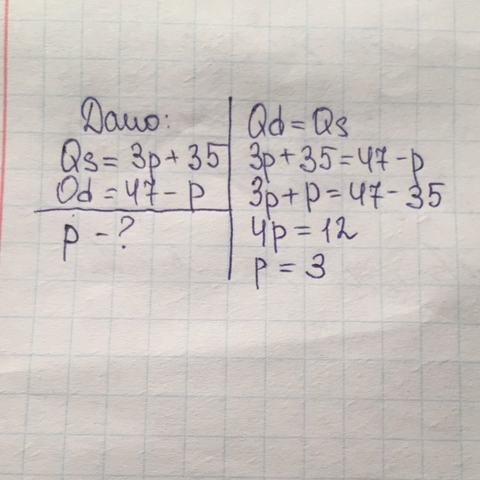 Дано:
Qs = 3p + 35
Qd = 47 - p
p - ?
Qd = Qs
3p + 35 = 47 - p
3p + p = 47 - 35
4p = 12
p = 3